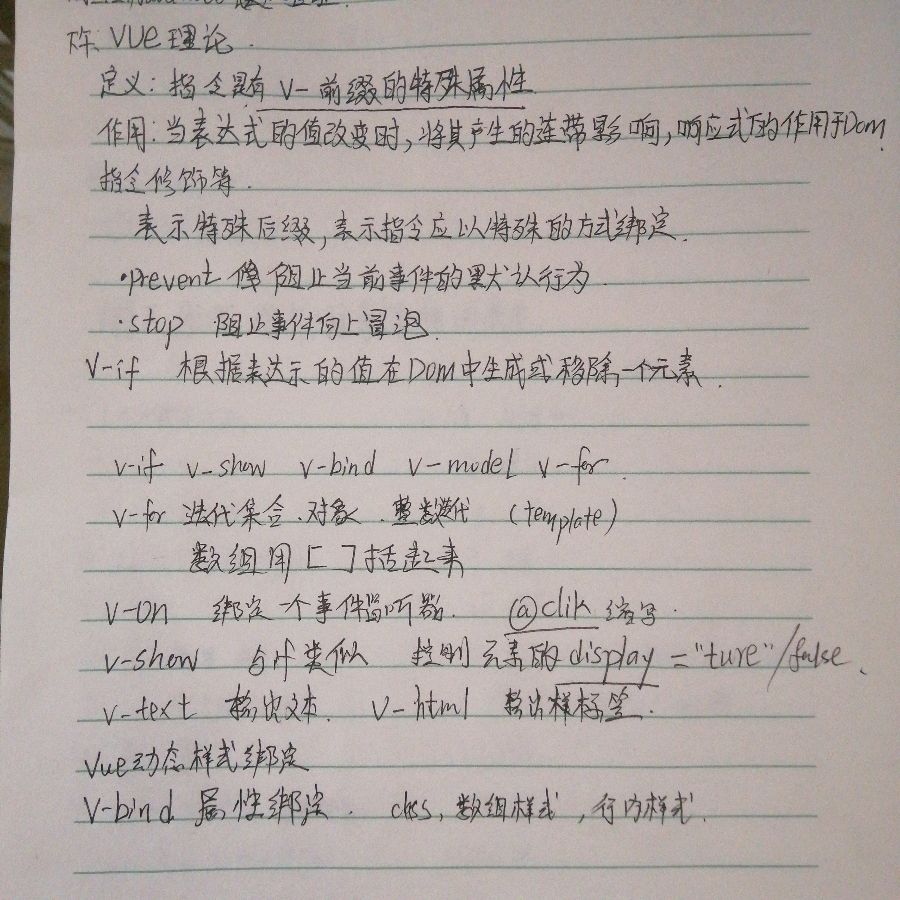 VUE理论.
定义：指令是有 v- 前缀的特殊属性
作用：当表达式的值改变时，将其产生的连带影响，响应式的作用于Dom.
指令修饰符.
表示特殊后缀，表示指令应以特殊的方式绑定.
·prevent 阻止当前事件的默认行为.
·stop 阻止事件向上冒泡.
V-if 根据表达示的值在Dom中生成或移除一个元素.
v-if v-show v-bind v-model v-for
v-for 迭代集合.对象.整数迭代 (template)
数组用[ ]括起来
v-on 绑定一个事件监听器. @clik 缩写.
v-show 与if类似 控制元素的display="ture"/false.
v-text 输出文本. v-html 输出标签.
Vue动态样式绑定
V-bind 属性绑定. class, 数组样式, 行内样式.